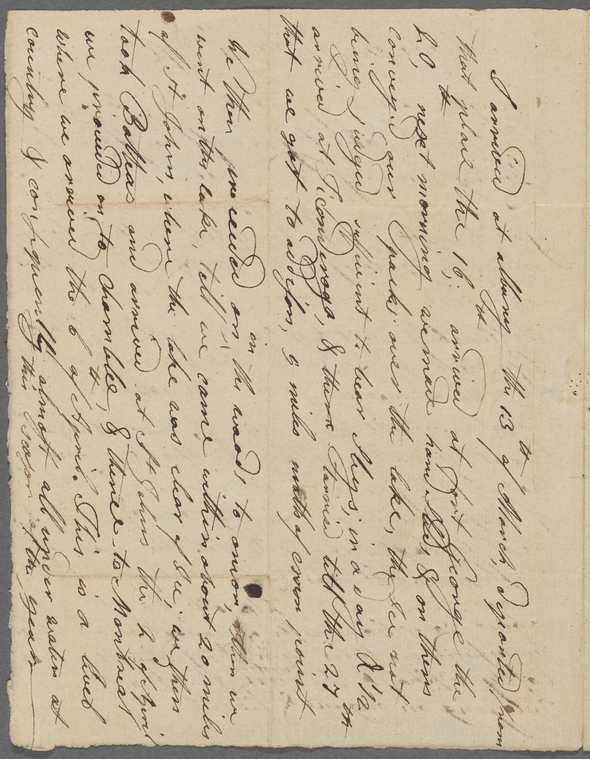 I arrived at Albany the 13th of March, Departed from
that place the 16th arrived at fort George the
20, next morning we made hand Sleds, & on them
convey'd our packs over the lake, the Ice not
being judged sufficient to bear Sleys, in a day & 1/2
arrived at Ticonderoga, & there Tarried till the 27th
that we got to addison, 9 miles north of crown point
We then proceeded on in the woods, to onion then we
went on the lake, till we came within about 20 miles
of St Johns, where the lake was clear of Ice. we then
took Batteas and arrived at St Johns the 4 of April
we proceeded on to chamblee, & thence to Montreal
where we arrived the 6th of April. This is a level
country & consequently almost all under water at
this Season of the year